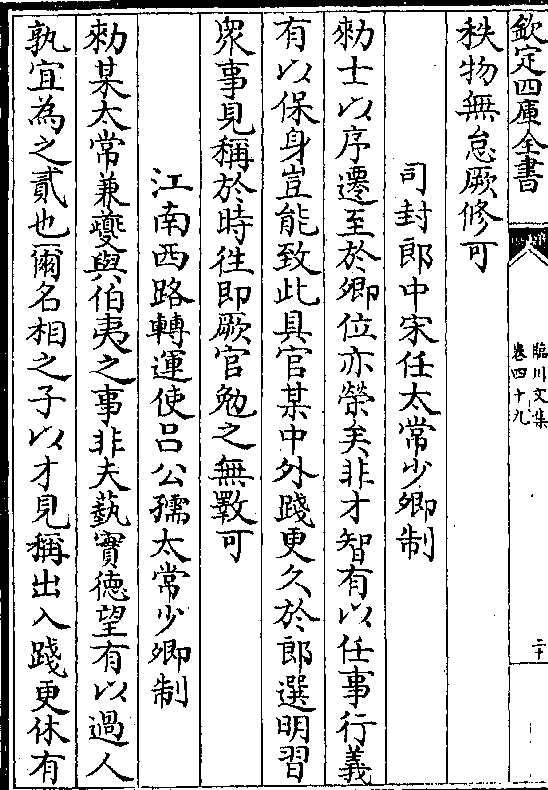 欽定四庫全書
臨川文集
卷四十九
二十
秩物無怠厥修可
司封郎中宋任太常少卿制
勑士以序遷至於卿位亦榮矣非才智有以任事行義
有以保身豈能致此具官某中外踐更久於郎選明習
衆事見稱於時徃即厥官勉之無斁可
江南西路轉運使吕公孺太常少卿制
勑某太常兼夔與伯夷之事非夫藝實德望有以過人
孰宜為之貳也爾名相之子以才見稱出入踐更休有